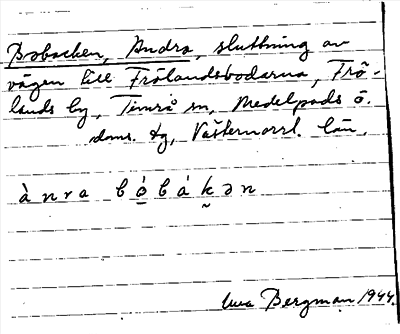 Bobacken, Andra, sluttning av
vägen till Frölandsbodarna, Frö-
lands by, Timrå sn, Medelpads ö.
doms. tg, Västernorrl. län.
ànra bó̠bák̬ən
Bergman 1944.